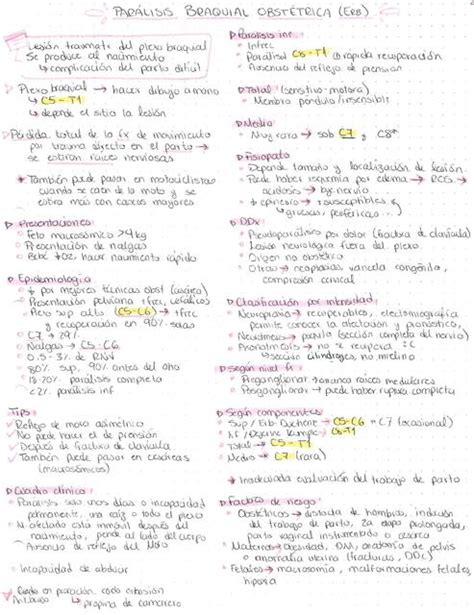 PARÁLISIS BRAQUIAL OBSTÉTRICA (ERB)
Lesión traumát. del plexo braquial
Se produce al nacimiento
↳ complicación del parto difícil
Plexo braquial → hacer dibujo a mano
↳ C5 - T1
↳ depende el sitio la lesión
Pérdida total de la fx de movimiento
por trauma directo en el parto →
se estiran raíces nerviosas
* También puede pasar en motociclistas
cuando se caen de la moto y se
estira más con cascos mayores
Presentaciones
Feto macrosómico > 4 kg
Presentación de nalgas
Bebé hace nacimiento rápido
Epidemiología
por mejores técnicas obst (cesárea)
Presentación pelviana +frec, cefálicos
sup alto (C5-C6) → +frec
y recuperación en 90% casos
C7 → 29%
Nalgas → C5-C6
0.5 - 3% de RNV
80% sup, 90% antes del año
18-20% parálisis completa
<2% parálisis inf
Tips
Reflejo de moro asimétrico
No puede hacer el de prensión
Después de fractura de clavícula
También puede pasar en cesáreas
(macrosómicos)
Cuadro clínico
Parálisis solo unos días o incapacidad
permanente, una raíz o todo el plexo
M afectado está inmóvil después del
nacimiento, pende al lado del cuerpo
Ausencia de reflejo del Moro
Incapacidad de abducir
codo
↳ propina de camarero
Parálisis inf
Infrec
Parálisis C8-T1 rápida recuperación
Ausencia del reflejo de prensión
Total (sensitivo-motora)
Miembro péndulo/insensible
Media
Muy rara → sob C7 y C8
Fisiopato
Depende tamaño y localización de lesión
Puede haber isquemia por edema → RCG →
acidosis → nervio
susceptibles
↳ gruesas, periféricas...)
DDx
Pseudoparálisis por dolor (fractura de clavícula)
Lesión neurológica fuera del plexo
Origen no obstétrico
Otras → neoplasias, varicela congénita,
compresión cervical
Clasificación por intensidad
Neuropraxia → recuperables, electromiografía
permite conocer la afectación y pronóstico
→ parcial (sección completa del nervio)
→ no se recupera
↳ sección cilindroejes, no mielina
Según nivel fx
Preganglionar → arranca raíces medulares
Posganglionar → rotura del nervio
Según componentes
Sup / Erb-Duchenne → C5-C6 + C7 (ocasional)
Inf / Dejerine Klumpke → C8-T1
Total → C5 - T1
Medio → C7 (rara)
* Inadecuada evaluación del trabajo de parto
Factores de riesgo
Obstétricos → distocia de hombros, inducción
del trabajo de parto, 2a etapa prolongada,
parto vaginal instrumentado o cesárea
Maternos → obesidad, DM, anatomía de pelvis
o anormalía uterina (fracturas, DDC)
Fetales → macrosomía, malformaciones fetales,
hipoxia